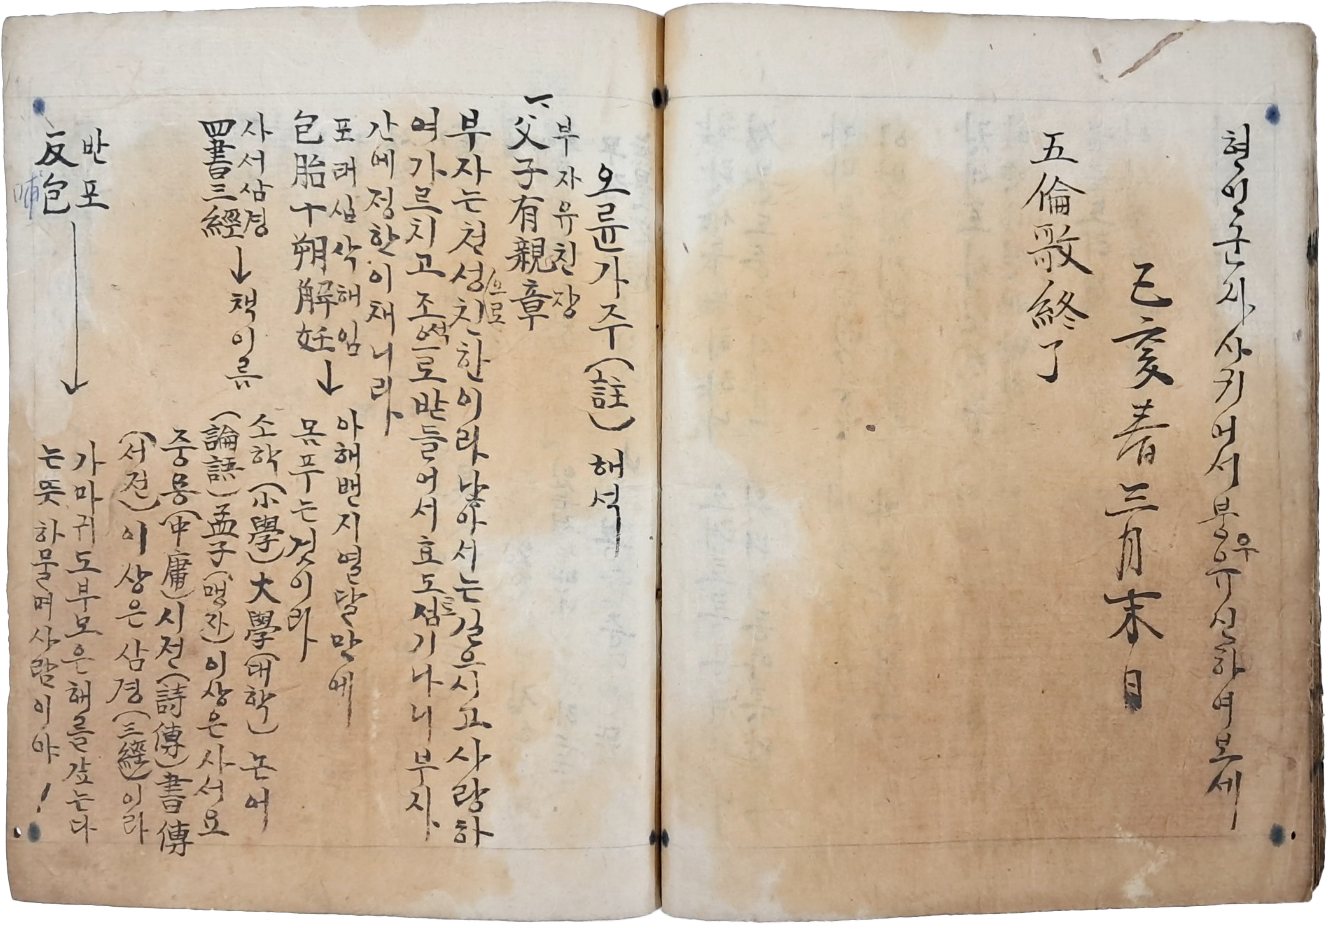 현인군자사귀어서붕우유신하여보세
五倫歌終了
己亥春三月末日
오륜가주(註)해석
부자유친장
一、父子有親章
부자는천성으로친한이라낳아서는길으시고사랑하
여가르치고조석으로받들어서효도로섬기나니부자
간에정한이채니라
포태십삭해임
包胎十朔解妊
아해밴지열달만에
몸푸는것이라
사서삼경
四書三經
책이름
소학(小學)大學(대학)논어
(論語)孟子(맹자)이상은사서요
중용(中庸)시전(詩傳)書傳
(서전)이상은삼경(三經)이라
반포
反包
哺
가마귀도부모은혜를갚는다
는뜻하물며사람이야!